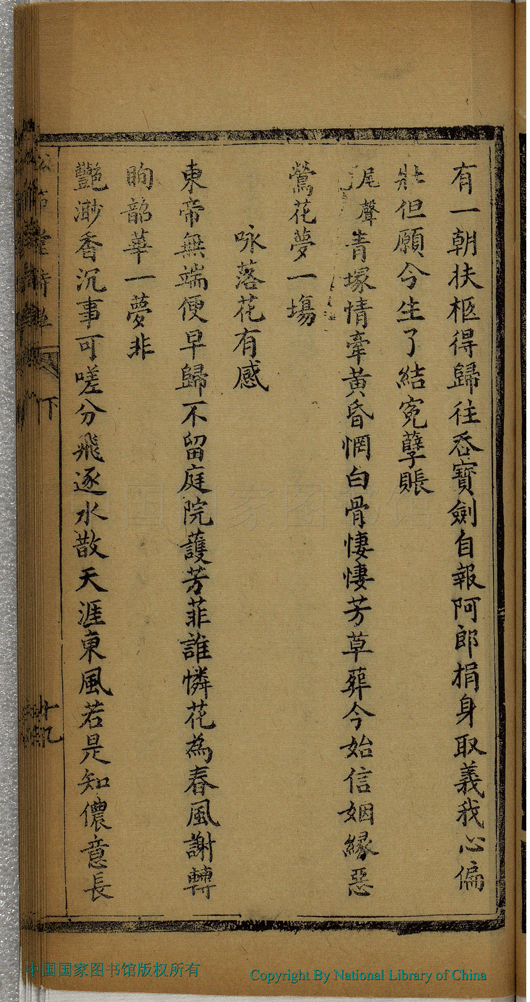 有一朝扶柩得歸往忝寶劍自報阿郎捐身取義我心偏
壯但願今生了結寃孽賬
尾聲青塚情牽黃昏惘白骨悽悽芳草葬今始信姻緣惡
鶯花夢一塲
咏落花有感
東帝無端便早歸不留庭院護芳菲誰憐花為春風謝轉
眴韶華一夢非
艷渺香沉事可嗟分飛逐水散天涯東風若是知儂意長
下
十九
中国国家图书馆版权所有
Copyright By National Library of China